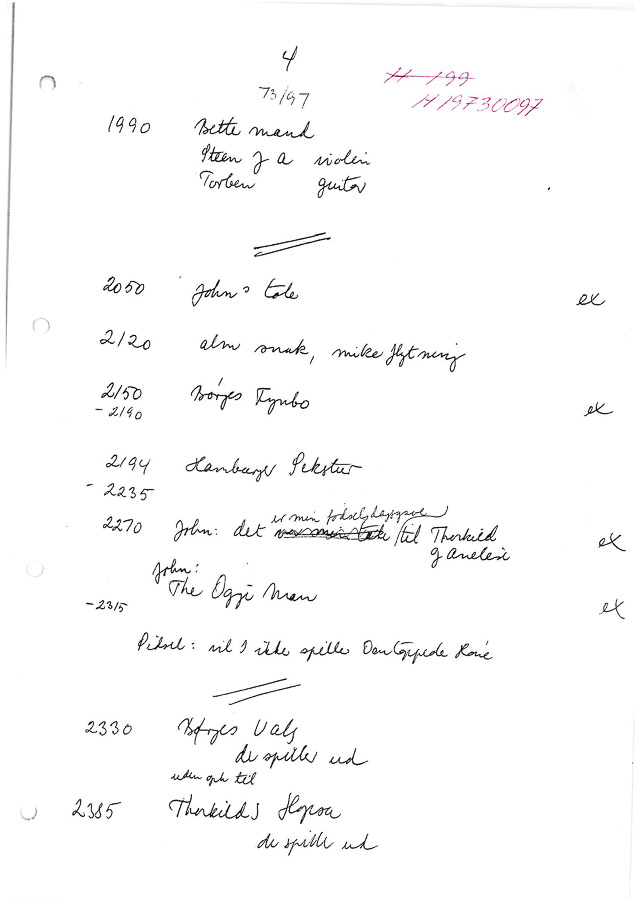 4
73/97
H 199
H 19730097
1990 Bette mand
Steen J a violin
Torben guitar
2050 John's tale ex
2120 alm snak, mike flytning
2150 Børges Fynbo ex
- 2190
2194 Hamburger Sekstur
- 2235
er min fødselsdagsgave
2270 John: det var min tale /til Thorkild ex
g Anelise
John:
The Oggi Man
- 2315 ex
Piksel: vil I ikke spille Den
2330 Børges Vals
de spiller ud
uden oph til
2385 Thorkilds Hopsa
de spille ud